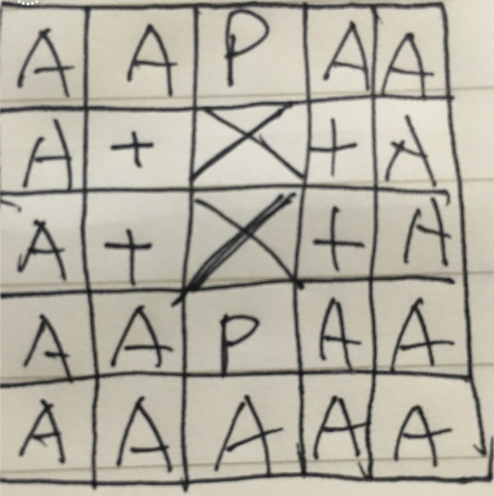 A A P A A
A + X + A
A + X + A
A A P A A
A A A A A